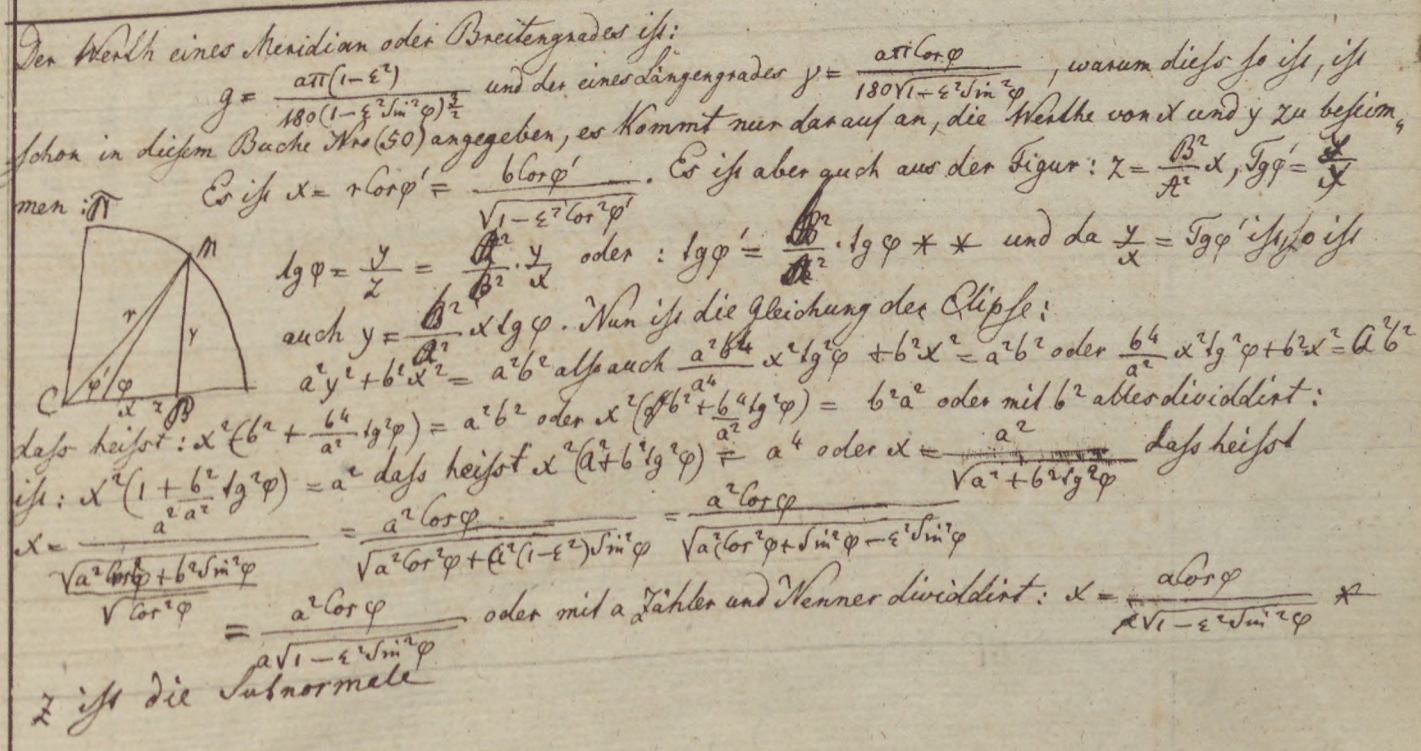 Der Werth eines Meridian oder Breitengrades ist:
g = aπ(1-ε²) / 180(1-ε² Sin²φ)^3/2 und der eines Längengrades γ = aπ Cosφ / 180√1-ε² Sin²φ , warum diess so ist, ist
schon in diesem Buche Nro (50) angegeben, es kommt nur darauf an, die Werthe von x und y zu bestim„
men : Es ist x = r Cosφ' = b Cosφ' / √1-ε² Cos²φ' . Es ist aber auch aus der Figur : z = B²/A² x, Tgφ' = y/x
π M r y C φ' φ x z B
tgφ = y/z = A²/B² · y/x oder : tgφ' = B²/A² · tgφ * * und da y/x = Tgφ' ist, so ist
auch y = B²/A² x tgφ. Nun ist die Gleichung der Elipse :
a²y² + b²x² = a²b² also auch a²b⁴/a⁴ x² tg²φ + b²x² = a²b² oder b⁴/a² x² tg²φ + b²x² = a²b²
dass heisst : x² (b² + b⁴/a² tg²φ) = a²b² oder x² (b² + b⁴/a² tg²φ) = b²a² oder mit b² alles dividdirt :
ist : x² (1 + b²/a² tg²φ) = a² dass heisst x² (a² + b² tg²φ) = a⁴ oder x = a² / √a² + b² tg²φ dass heisst
x = a² / √a² Cos²φ + b² Sin²φ / √Cos²φ = a² Cosφ / √a² Cos²φ + a²(1-ε²) Sin²φ = a² Cosφ / √a²(Cos²φ + Sin²φ - ε² Sin²φ
= a² Cosφ / a√1-ε² Sin²φ oder mit a Zähler und Nenner dividdirt : x = a Cosφ / √1-ε² Sin²φ *
Z ist die Subnormale